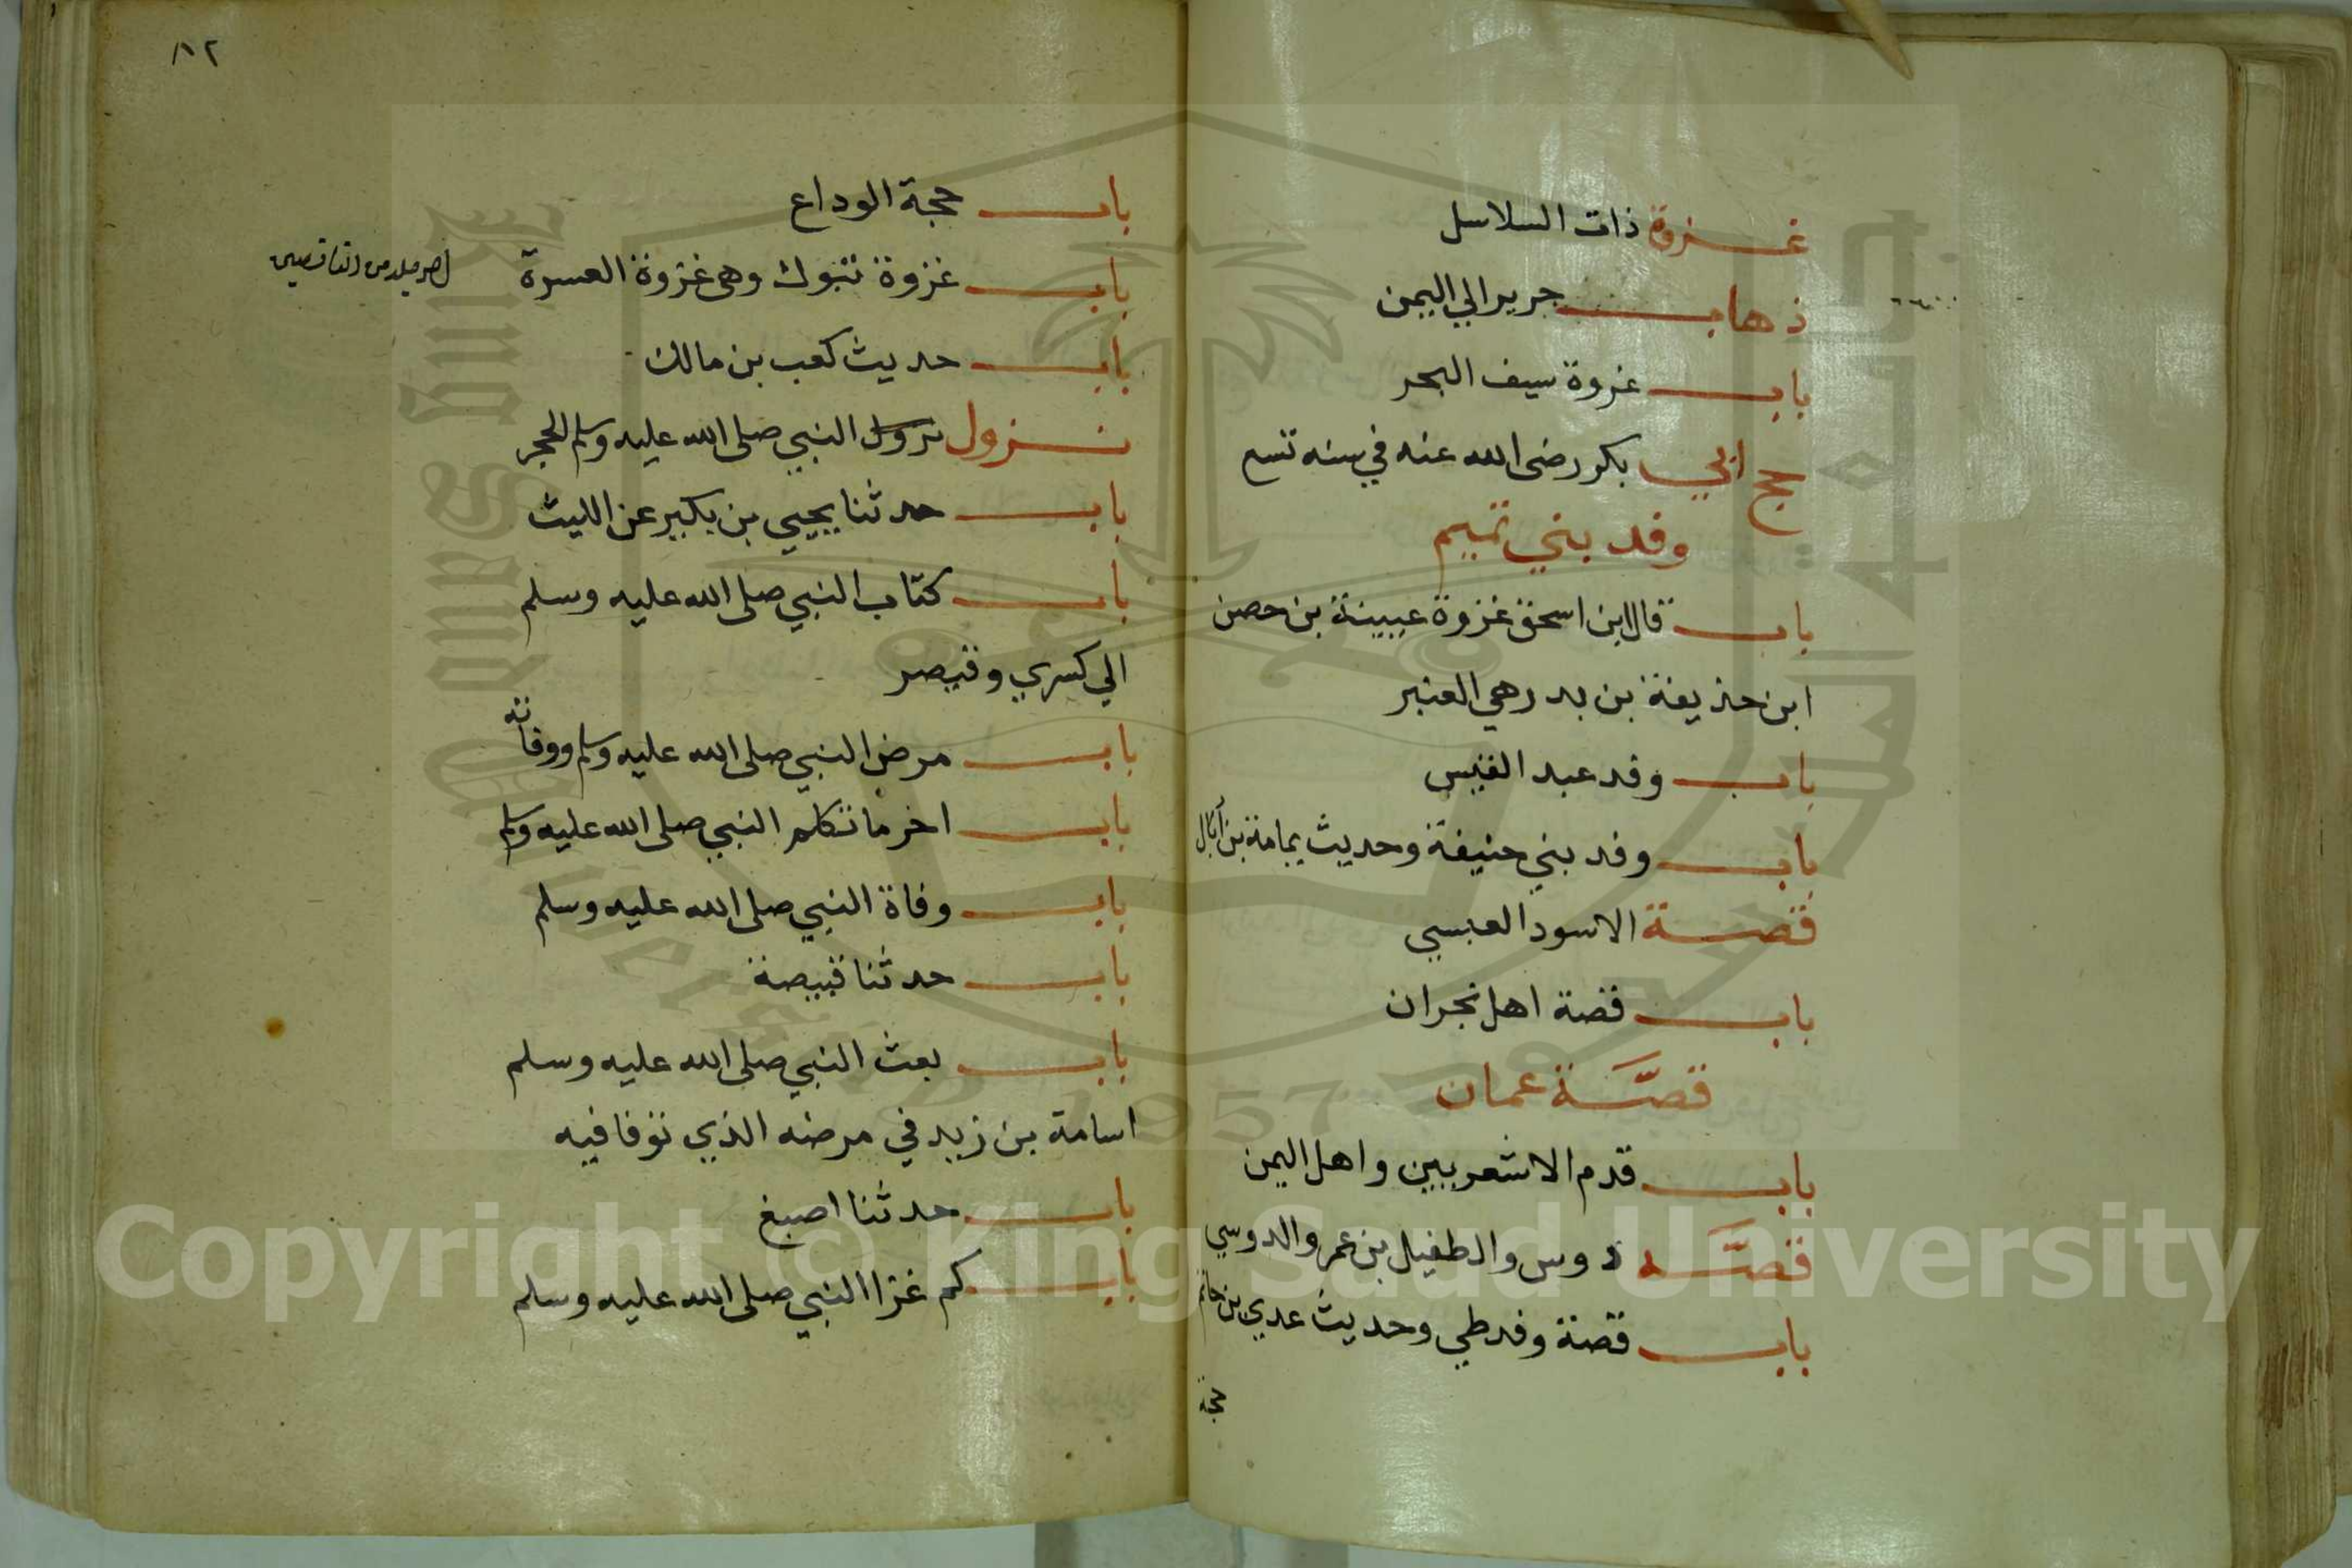 غزوة ذات السلاسل
ذهاب جرير الي اليمن
باب غزوة سيف البحر
حج ابي بكر رضى الله عنه في سنه تسع
وفد بني تميم
باب قال ابن اسحق غزوة عيينة بن حصن
ابن حذيفة بن بدر هي العنبر
باب وفد عبد القيس
باب وفد بني حنيفة وحديث يمامة بن أثال
قصة الاسود العبسي
باب قصة اهل نجران
قصَّة عمان
باب قدم الاشعريين واهل اليمن
قصَّه دوس والطفيل بن عمرو الدوسي
باب قصة وفد طي وحديث عدي بن حاتم
حجة
٨٢
باب حجة الوداع
باب غزوة تبوك وهى غزوة العسرة
باب حديث كعب بن مالك
نزول نزول النبي صلى الله عليه وسلم الحجر
باب حدثنا يحيي بن بكير عن الليث
باب كتاب النبي صلى الله عليه وسلم
الي كسري وقيصر
باب مرض النبي صلى الله عليه وسلم ووفاته
باب اخر ما تكلم النبي صلى الله عليه وسلم
باب وفاة النبي صلى الله عليه وسلم
باب حدثنا قبيصة
باب بعث النبي صلى الله عليه وسلم
اسامة بن زيد في مرضه الذي توفا فيه
باب حدثنا اصبغ
باب كم غزا النبي صلى الله عليه وسلم
Copyright © King Saud University
1957